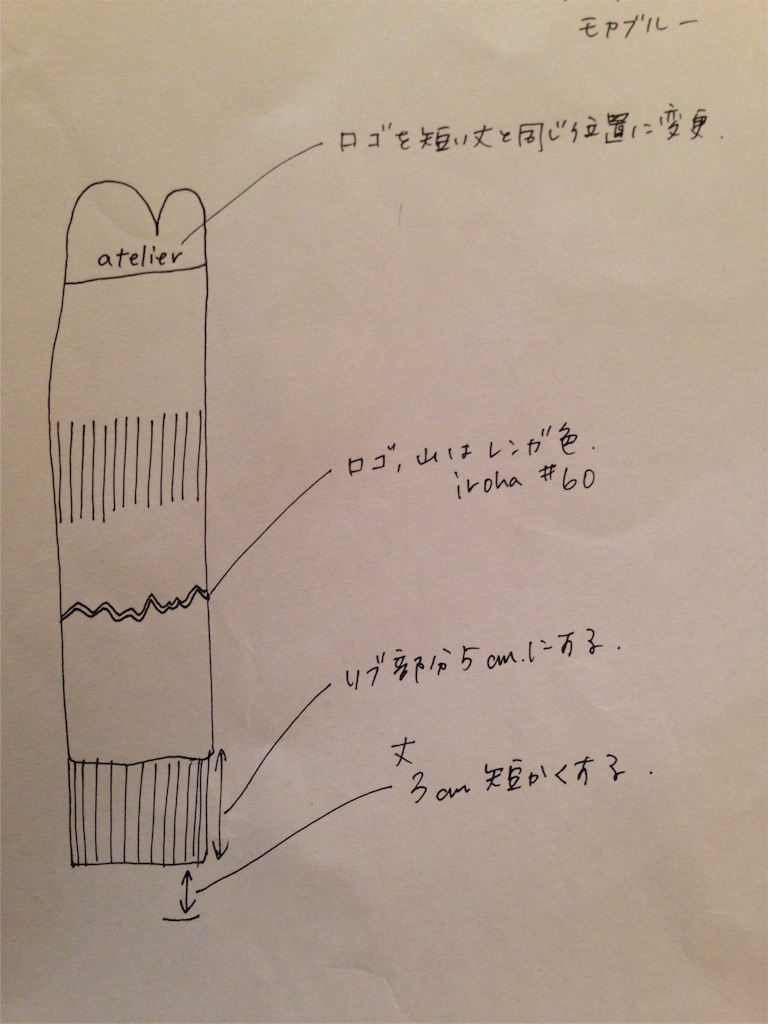 モアブルー
ロゴを短い丈と同じ位置に変更.
atelier
ロゴ,山はレンガ色.
iroha #60
リブ部分5cm.にする.
丈
3cm短かくする.